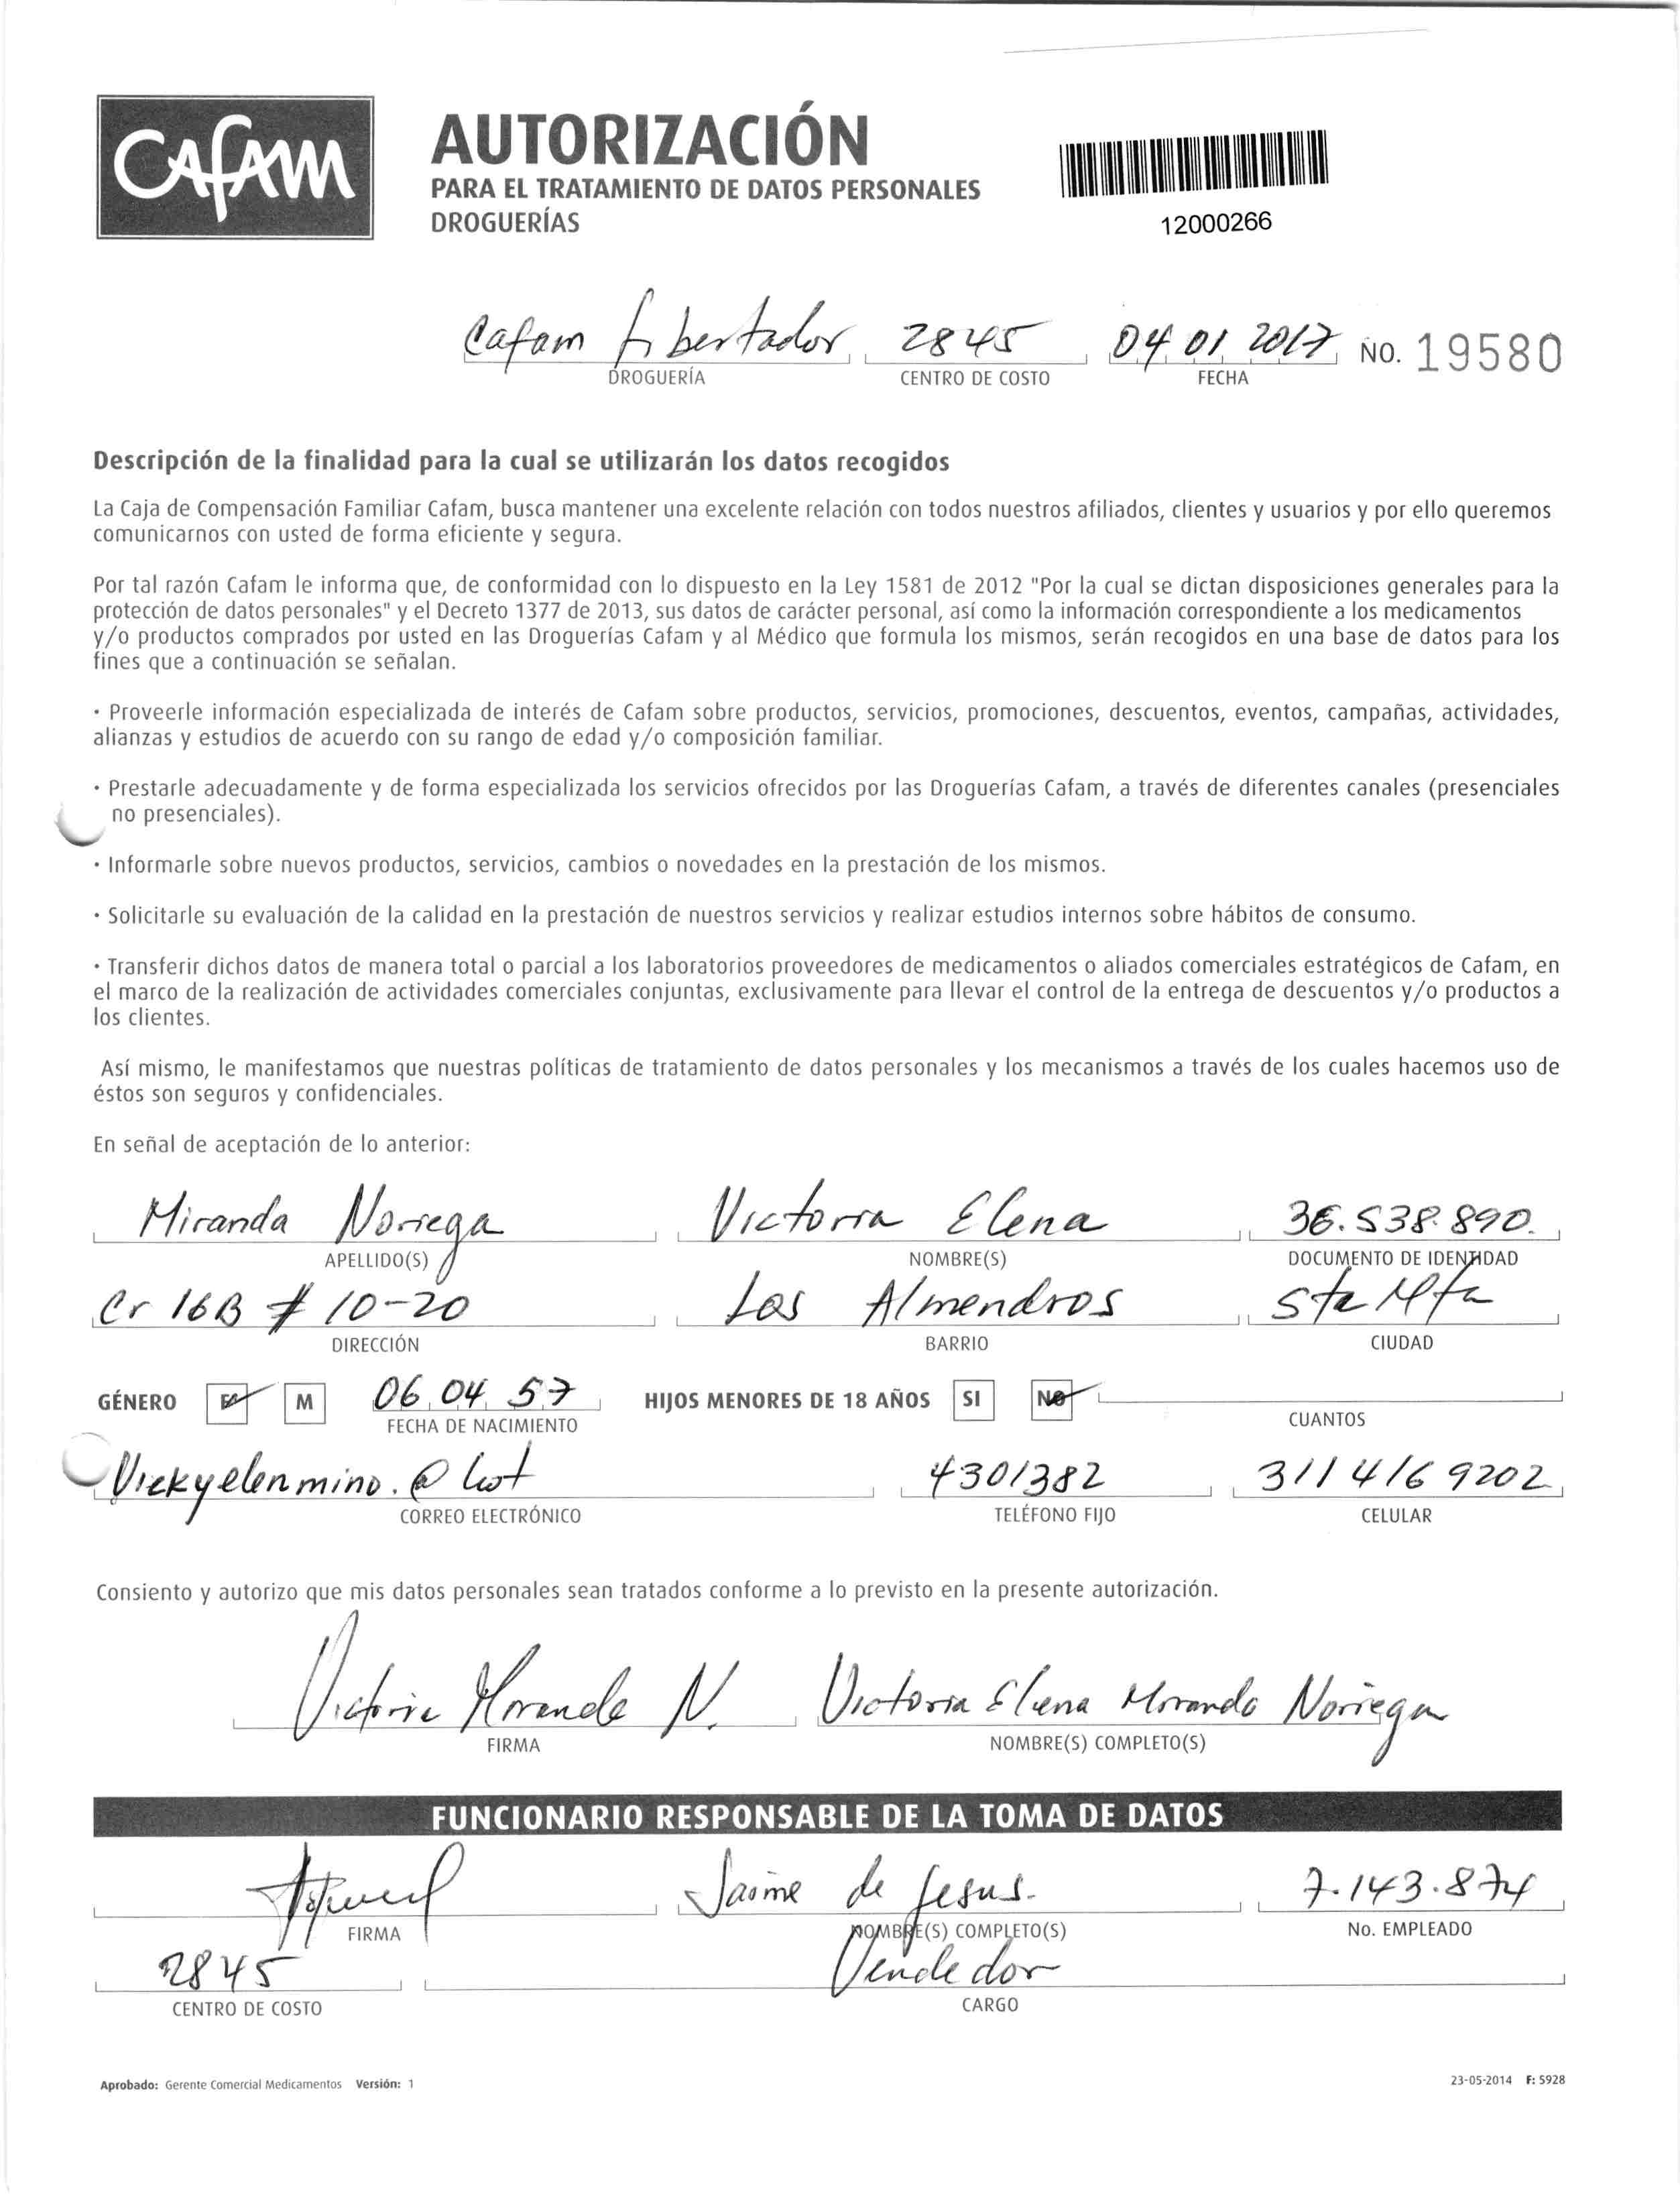 CAFAM
AUTORIZACIÓN
PARA EL TRATAMIENTO DE DATOS PERSONALES
DROGUERÍAS
12000266
Cafam Libertador 2845 04 01 2017 NO. 19580
DROGUERÍA CENTRO DE COSTO FECHA
Descripción de la finalidad para la cual se utilizarán los datos recogidos
La Caja de Compensación Familiar Cafam, busca mantener una excelente relación con todos nuestros afiliados, clientes y usuarios y por ello queremos
comunicarnos con usted de forma eficiente y segura.
Por tal razón Cafam le informa que, de conformidad con lo dispuesto en la Ley 1581 de 2012 "Por la cual se dictan disposiciones generales para la
protección de datos personales" y el Decreto 1377 de 2013, sus datos de carácter personal, así como la información correspondiente a los medicamentos
y/o productos comprados por usted en las Droguerías Cafam y al Médico que formula los mismos, serán recogidos en una base de datos para los
fines que a continuación se señalan.
· Proveerle información especializada de interés de Cafam sobre productos, servicios, promociones, descuentos, eventos, campañas, actividades,
alianzas y estudios de acuerdo con su rango de edad y/o composición familiar.
· Prestarle adecuadamente y de forma especializada los servicios ofrecidos por las Droguerías Cafam, a través de diferentes canales (presenciales
no presenciales).
· Informarle sobre nuevos productos, servicios, cambios o novedades en la prestación de los mismos.
· Solicitarle su evaluación de la calidad en la prestación de nuestros servicios y realizar estudios internos sobre hábitos de consumo.
· Transferir dichos datos de manera total o parcial a los laboratorios proveedores de medicamentos o aliados comerciales estratégicos de Cafam, en
el marco de la realización de actividades comerciales conjuntas, exclusivamente para llevar el control de la entrega de descuentos y/o productos a
los clientes.
Así mismo, le manifestamos que nuestras políticas de tratamiento de datos personales y los mecanismos a través de los cuales hacemos uso de
éstos son seguros y confidenciales.
En señal de aceptación de lo anterior:
Miranda Noriega Victoria Elena 36.538.890.
APELLIDO(S) NOMBRE(S) DOCUMENTO DE IDENTIDAD
Cr 16B # 10-20 Los Almendros Sta Mta
DIRECCIÓN BARRIO CIUDAD
GÉNERO F M 06 04 57 HIJOS MENORES DE 18 AÑOS SI NO
FECHA DE NACIMIENTO CUANTOS
Vickyelenmino.@ hot 4301382 311 416 9202
CORREO ELECTRÓNICO TELÉFONO FIJO CELULAR
Consiento y autorizo que mis datos personales sean tratados conforme a lo previsto en la presente autorización.
Victoria Miranda N. Victoria Elena Miranda Noriega
FIRMA NOMBRE(S) COMPLETO(S)
FUNCIONARIO RESPONSABLE DE LA TOMA DE DATOS
Jaime de Jesus. 7.143.874
FIRMA NOMBRE(S) COMPLETO(S) No. EMPLEADO
2845 Vendedor
CENTRO DE COSTO CARGO
Aprobado: Gerente Comercial Medicamentos Versión: 1 23-05-2014 F: 5928